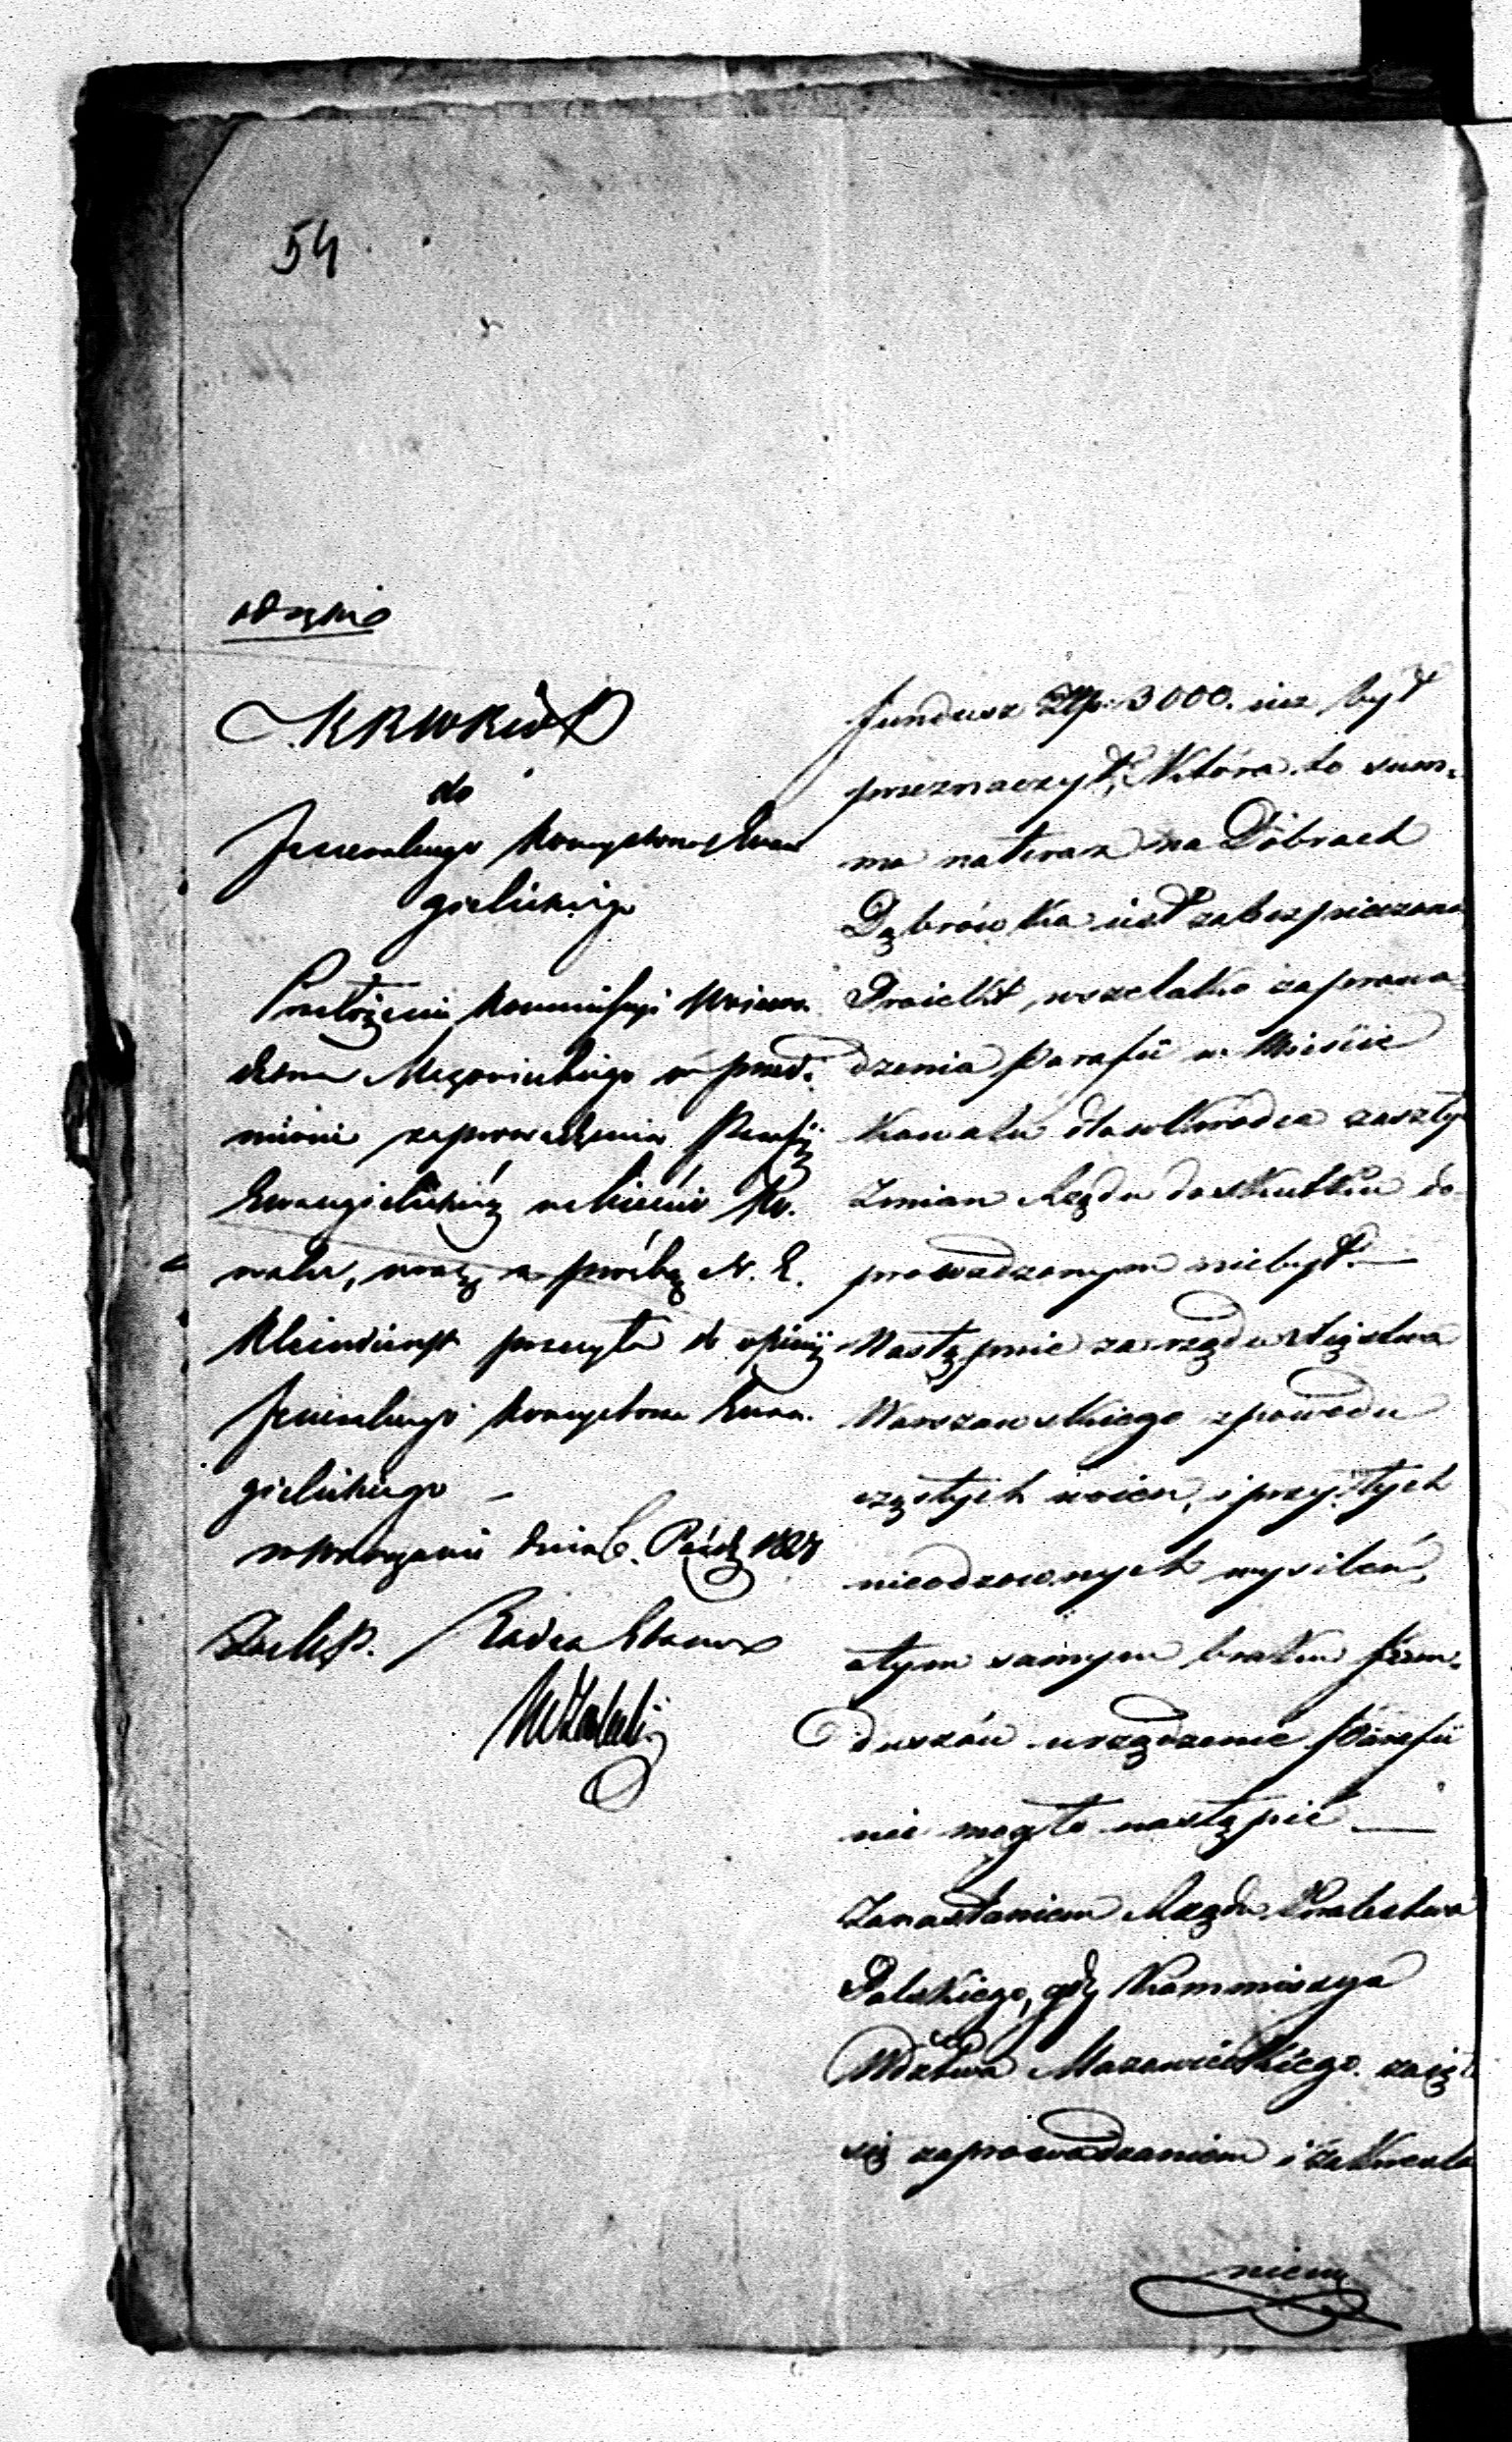 54
odręknie
KRWRiOP
do
Jeneralnego Konsystorza Ewan
gielickiego
Przełożenie Kommissyi Woiewo.
dztwa Mazowieckiego w przed.
miocie zaprowadzenia Parafij
Ewangielickiéy w Mieście Ko.
walu, wraz z prośbą N. E.
Kleindienst przesyła do opinij
Jeneralnego Konsystorza Ewan.
gielickiego
w Warszawie dnia 6. Paźdz 1827
Zastęp. Radca Stanu
fundusz Złp. 3000. iuż był
przeznaczył, Która to sum.
ma na teraz na Dobrach
Dąbrówka iest zabezpieczona
Proiekt wszelako zaprowa
dzenia Parafii w Mieście
Kowalu dla wkrodca zaszłych
Zmian Rządu do skutku do
prowadzonym niebył. —
Następnie za rządu Xięstwa
Warszawskiego z powodu
częstych woien, i przy tych
nieodzownych wysileń,
a tym samym braku fun.
duszów urządzenie Parafii
nie mogło nastąpić —
Za nastaniem Rządu Królestwa
Polskiego, gdy Kommissya
Wdztwa Mazowieckiego zaięła
się zaprowadzaniem i zakreśla
niem